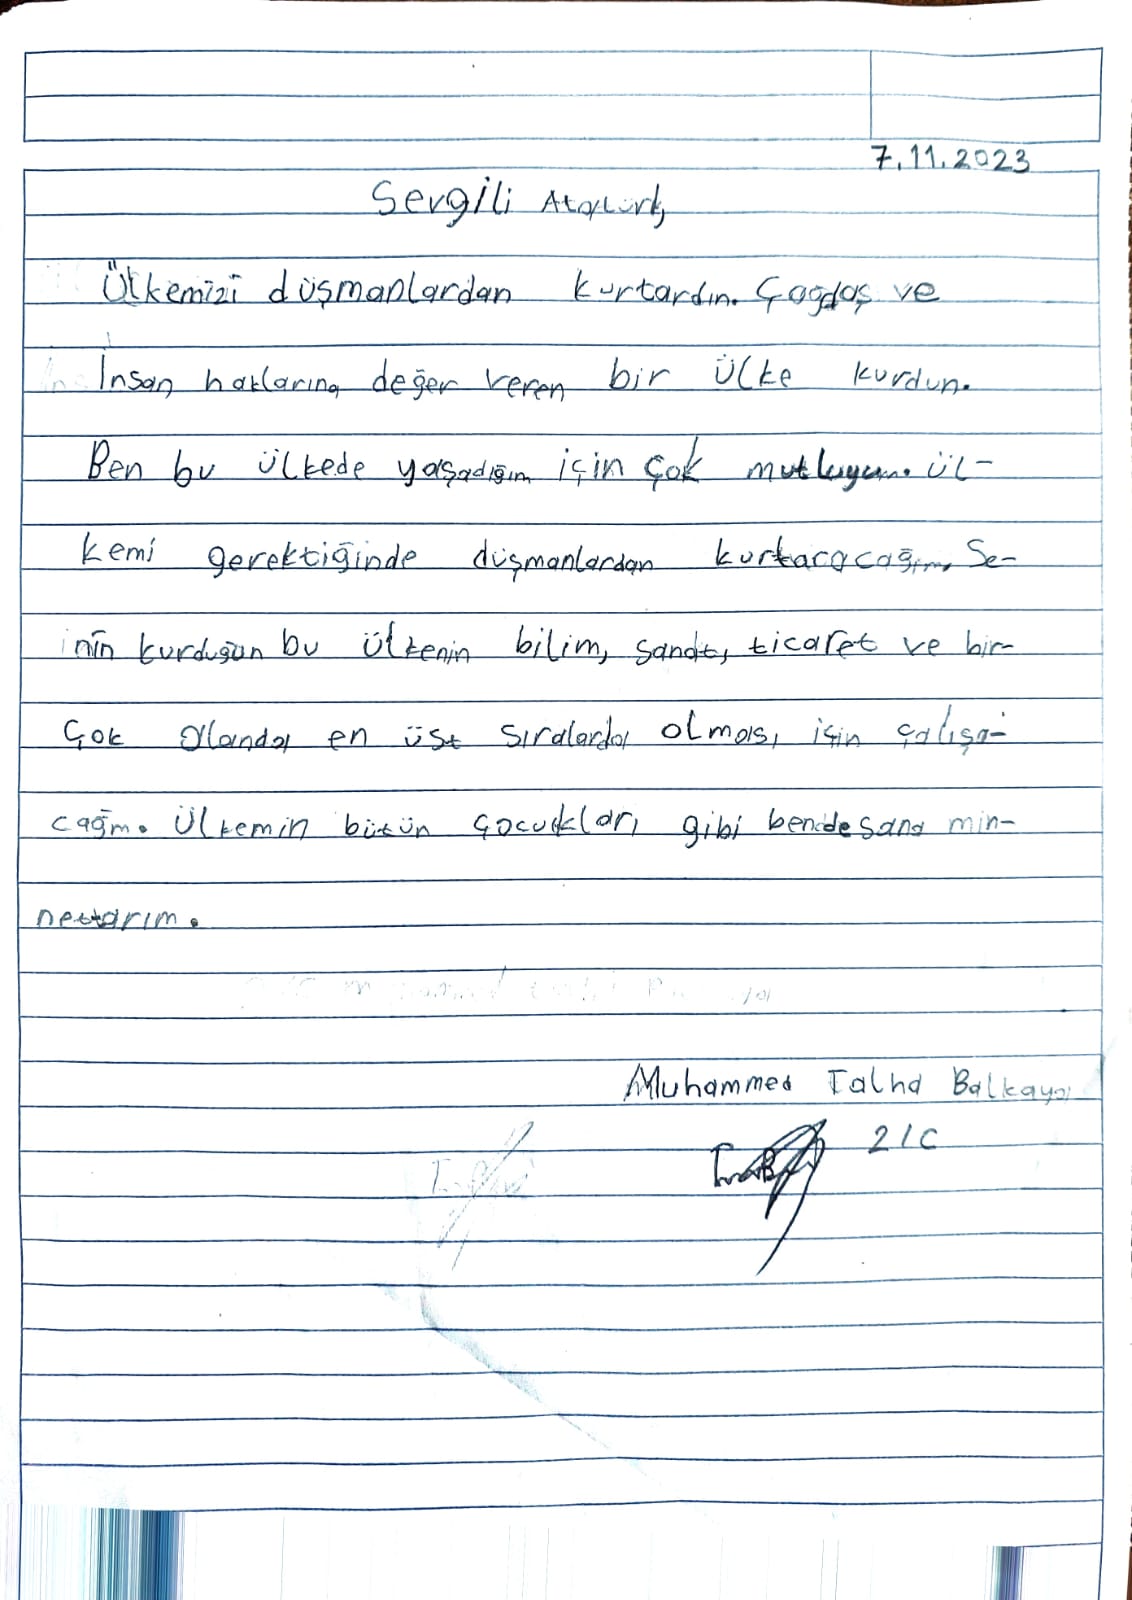 7.11.2023
Sevgili Atatürk,
Ülkemizi düşmanlardan kurtardın. Çağdaş ve
İnsan haklarına değer veren bir ülke kurdun.
Ben bu ülkede yaşadığım için çok mutluyum. Ül-
kemi gerektiğinde düşmanlardan kurtaracağım. Se-
nin kurduğun bu ülkenin bilim, sanat, ticaret ve bir-
çok alanda en üst sıralarda olması için çalışa-
cağm. Ülkemin bütün çocukları gibi bende sana min-
nettarım.
Muhammed Talha Balkaya
2/C